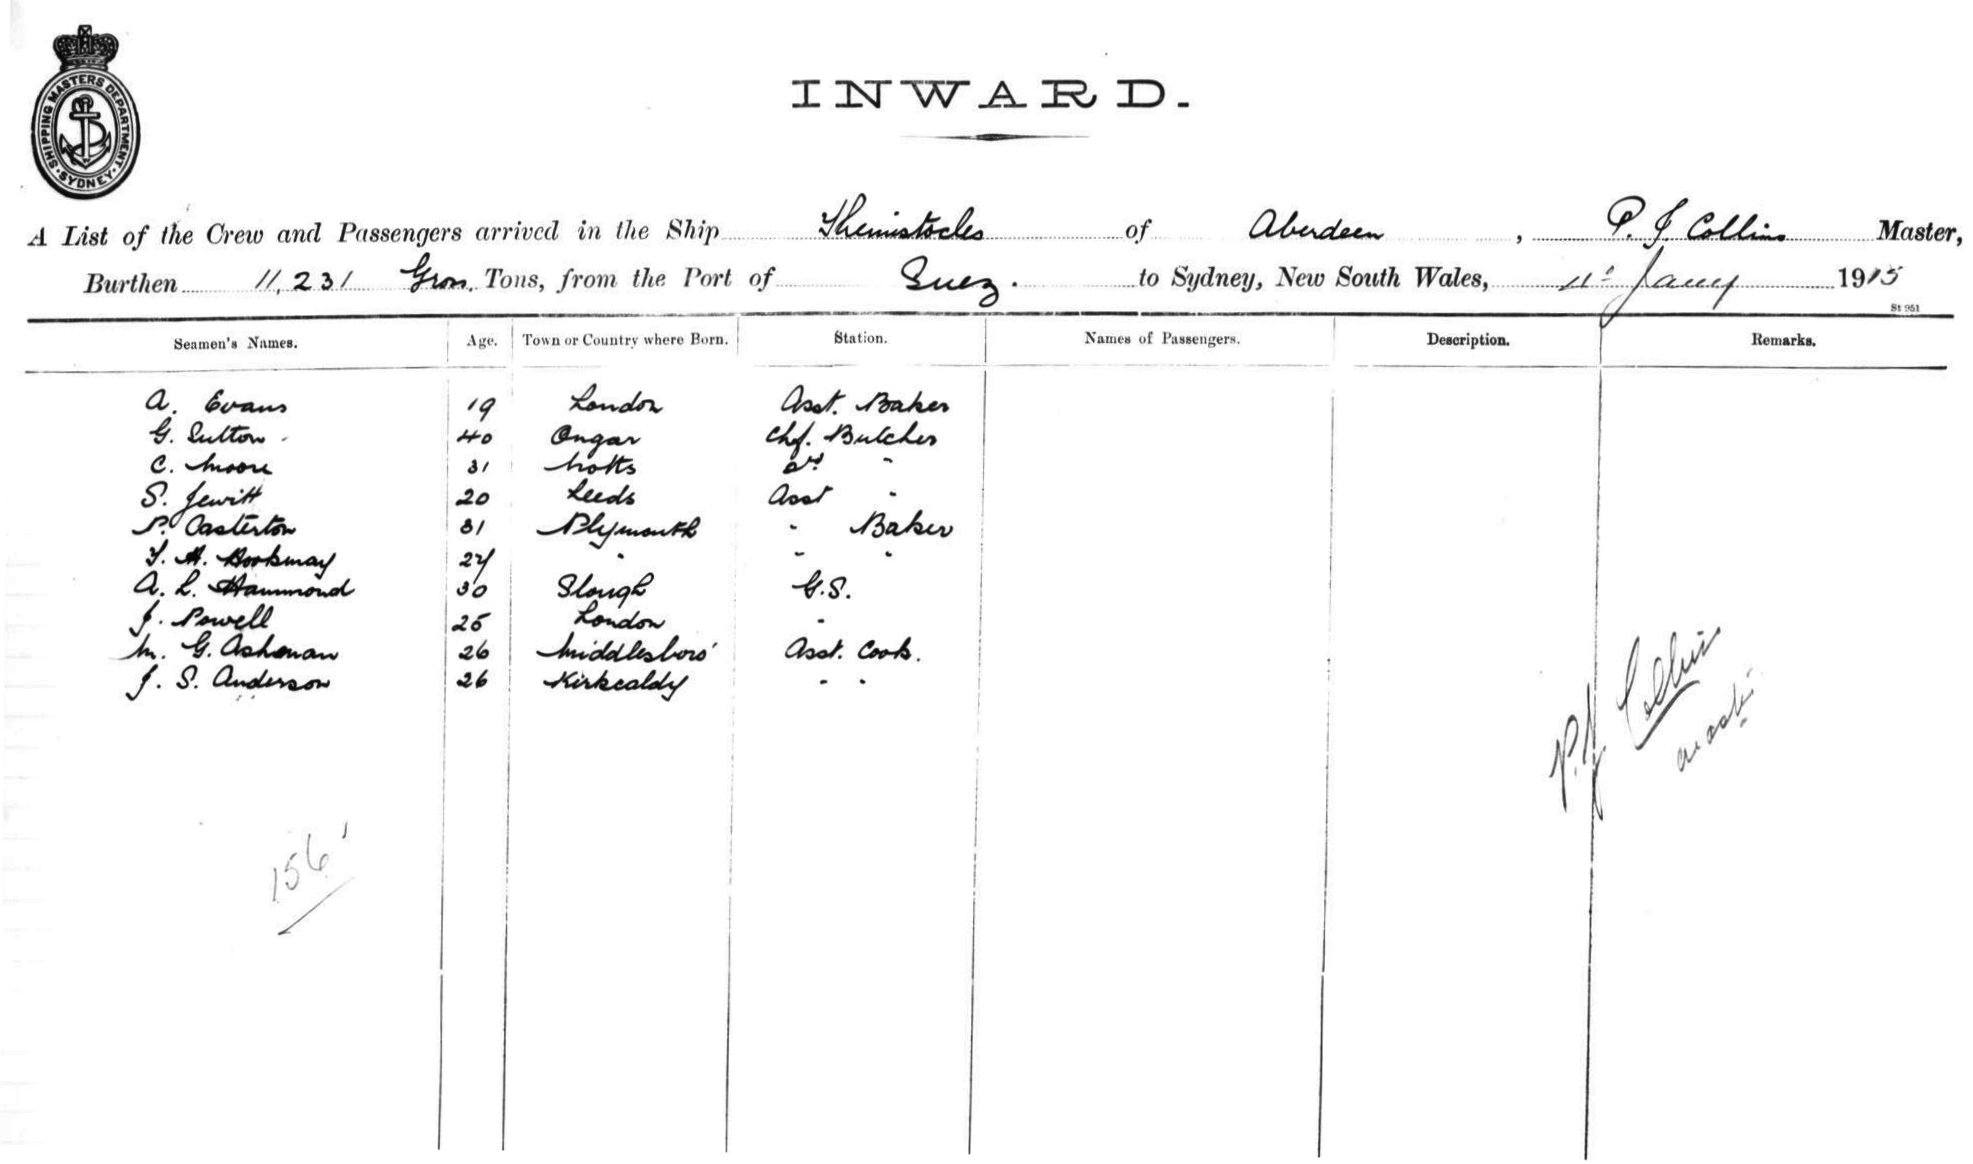 SHIPPING MASTERS DEPARTMENT. SYDNEY
INWARD.
A List of the Crew and Passengers arrived in the Ship Themistocles of Aberdeen, P. J. Collins Master,
Burthen 11,231 Gross Tons, from the Port of Suez. to Sydney, New South Wales, 11th Jany 1915
St 951
Seamen's Names. Age. Town or Country where Born. Station. Names of Passengers. Description. Remarks.
A. Evans 19 London Asst. Baker
G. Sutton 40 Ongar Chf. Butcher
C. Moore 31 Notts 2nd "
S. Jewitt 20 Leeds Asst "
P. Casterton 31 Plymouth " Baker
T. H. Hookway 24 " " "
A. L. Hammond 30 Slough G.S.
J. Powell 25 London "
M. G. Ashman 26 Middlesboro' Asst. Cook.
J. S. Anderson 26 Kirkcaldy " "
P. J. Collins
Master
156